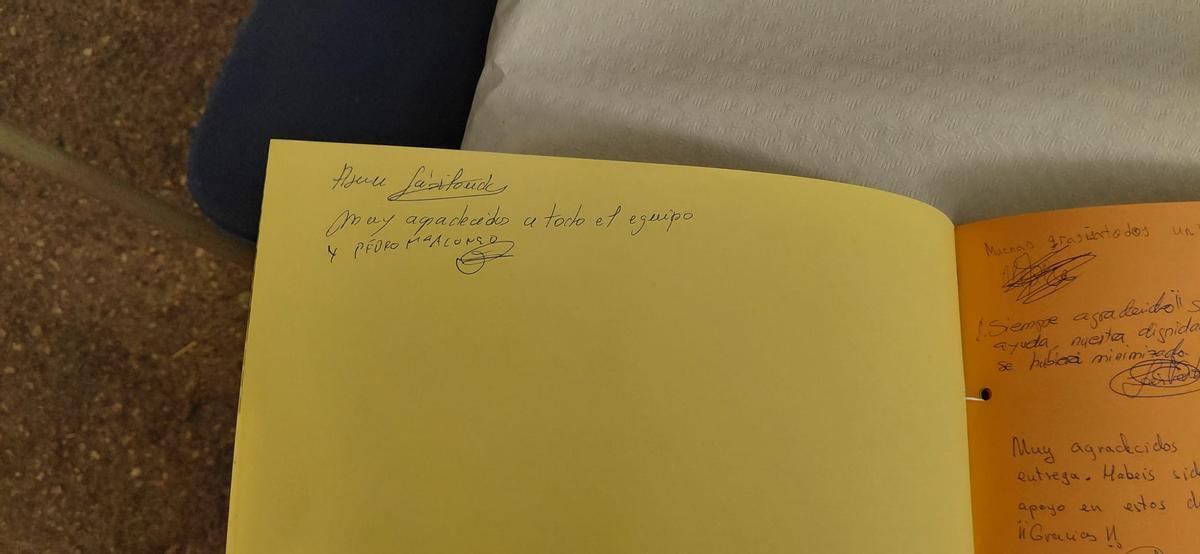 Muy agradecidos a todo el equipo
Y PEDRO
Muchas todos un
Siempre agradecido!! s
ayuda, nuestra dignida
se hubiera minimizado.
Muy agradecidos
entrega. Habeis sid
apoyo en estos d
¡¡Gracias!!